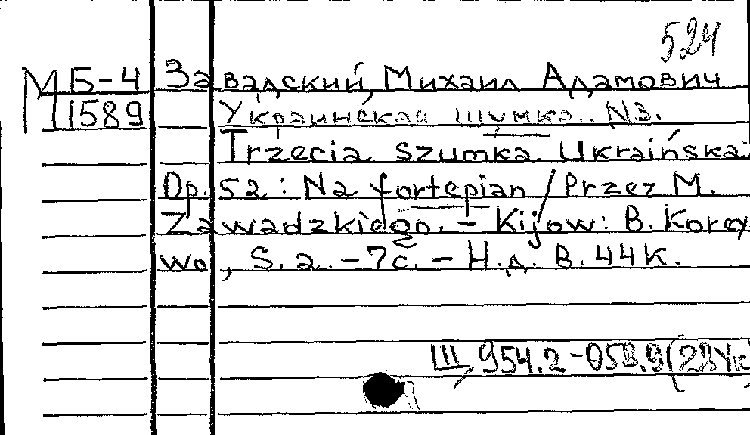 524
М Б-4 Завадский, Михаил Адамович
1589 Украинская шумка. N3.
Trzecia szumka Ukraińska.
Op. 52: Na fortepian / Przez M.
Zawadzkiego. - Kijow: B. Korey
wo, S. a. - 7c. - Н.д. B. 44 K.
III, 954.2-058.9(2=Ук